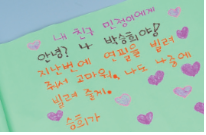 내 친구 민정이에게
안녕? 나 박승희야!
지난번에 연필을 빌려
줘서 고마워. 나도 나중에
빌려 줄게.
승희가